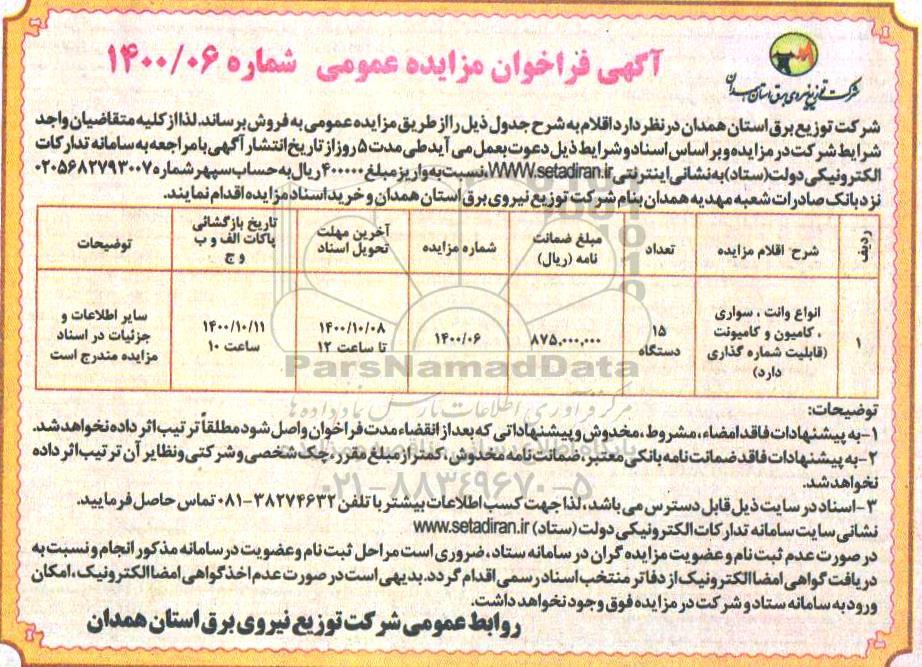 آگهی فراخوان مزایده عمومی شماره ۱۴۰۰/۰۶
شرکت توزیع نیروی برق استان همدان
شرکت توزیع برق استان همدان در نظر دارد اقلام به شرح جدول ذیل را از طریق مزایده عمومی به فروش برساند. لذا از کلیه متقاضیان واجد
شرایط شرکت در مزایده و بر اساس اسناد و شرایط ذیل دعوت بعمل می آید طی مدت ۵ روز از تاریخ انتشار آگهی با مراجعه به سامانه تدارکات
الکترونیکی دولت (ستاد) به نشانی اینترنتی WWW.setadiran.ir، نسبت به واریز مبلغ ۴۰۰۰۰۰ ریال به حساب سپهر شماره ۰۲۰۵۶۸۲۷۹۳۰۰۷
نزد بانک صادرات شعبه مهدیه همدان بنام شرکت توزیع نیروی برق استان همدان و خرید اسناد مزایده اقدام نمایند.
ردیف شرح اقلام مزایده تعداد مبلغ ضمانت نامه (ریال) شماره مزایده آخرین مهلت تحویل اسناد تاریخ بازگشائی پاکات الف و ب و ج توضیحات
۱ انواع وانت ، سواری ، کامیون و کامیونت (قابلیت شماره گذاری دارد) ۱۵ دستگاه ۸۷۵,۰۰۰,۰۰۰ ۱۴۰۰/۰۶ ۱۴۰۰/۱۰/۰۸ تا ساعت ۱۲ ۱۴۰۰/۱۰/۱۱ ساعت ۱۰ سایر اطلاعات و جزئیات در اسناد مزایده مندرج است
ParsNamadData
مرکز فرآوری اطلاعات پارس نماد داده ها
۰۲۱-۸۸۳۴۹۶۷۰-۵
توضیحات:
۱-به پیشنهادات فاقد امضاء، مشروط، مخدوش و پیشنهاداتی که بعد از انقضاء مدت فراخوان واصل شود مطلقاً ترتیب اثر داده نخواهد شد.
۲-به پیشنهادات فاقد ضمانت نامه بانکی معتبر، ضمانت نامه مخدوش، کمتر از مبلغ مقرر، چک شخصی و شرکتی و نظایر آن ترتیب اثر داده
نخواهد شد.
۳-اسناد در سایت ذیل قابل دسترس می باشد، لذا جهت کسب اطلاعات بیشتر با تلفن ۳۸۲۷۴۶۳۲-۰۸۱ تماس حاصل فرمایید.
نشانی سایت سامانه تدارکات الکترونیکی دولت (ستاد) www.setadiran.ir
در صورت عدم ثبت نام و عضویت مزایده گران در سامانه ستاد، ضروری است مراحل ثبت نام و عضویت در سامانه مذکور انجام و نسبت به
دریافت گواهی امضا الکترونیک از دفاتر منتخب اسناد رسمی اقدام گردد. بدیهی است در صورت عدم اخذ گواهی امضا الکترونیک، امکان
ورود به سامانه ستاد و شرکت در مزایده فوق وجود نخواهد داشت.
روابط عمومی شرکت توزیع نیروی برق استان همدان